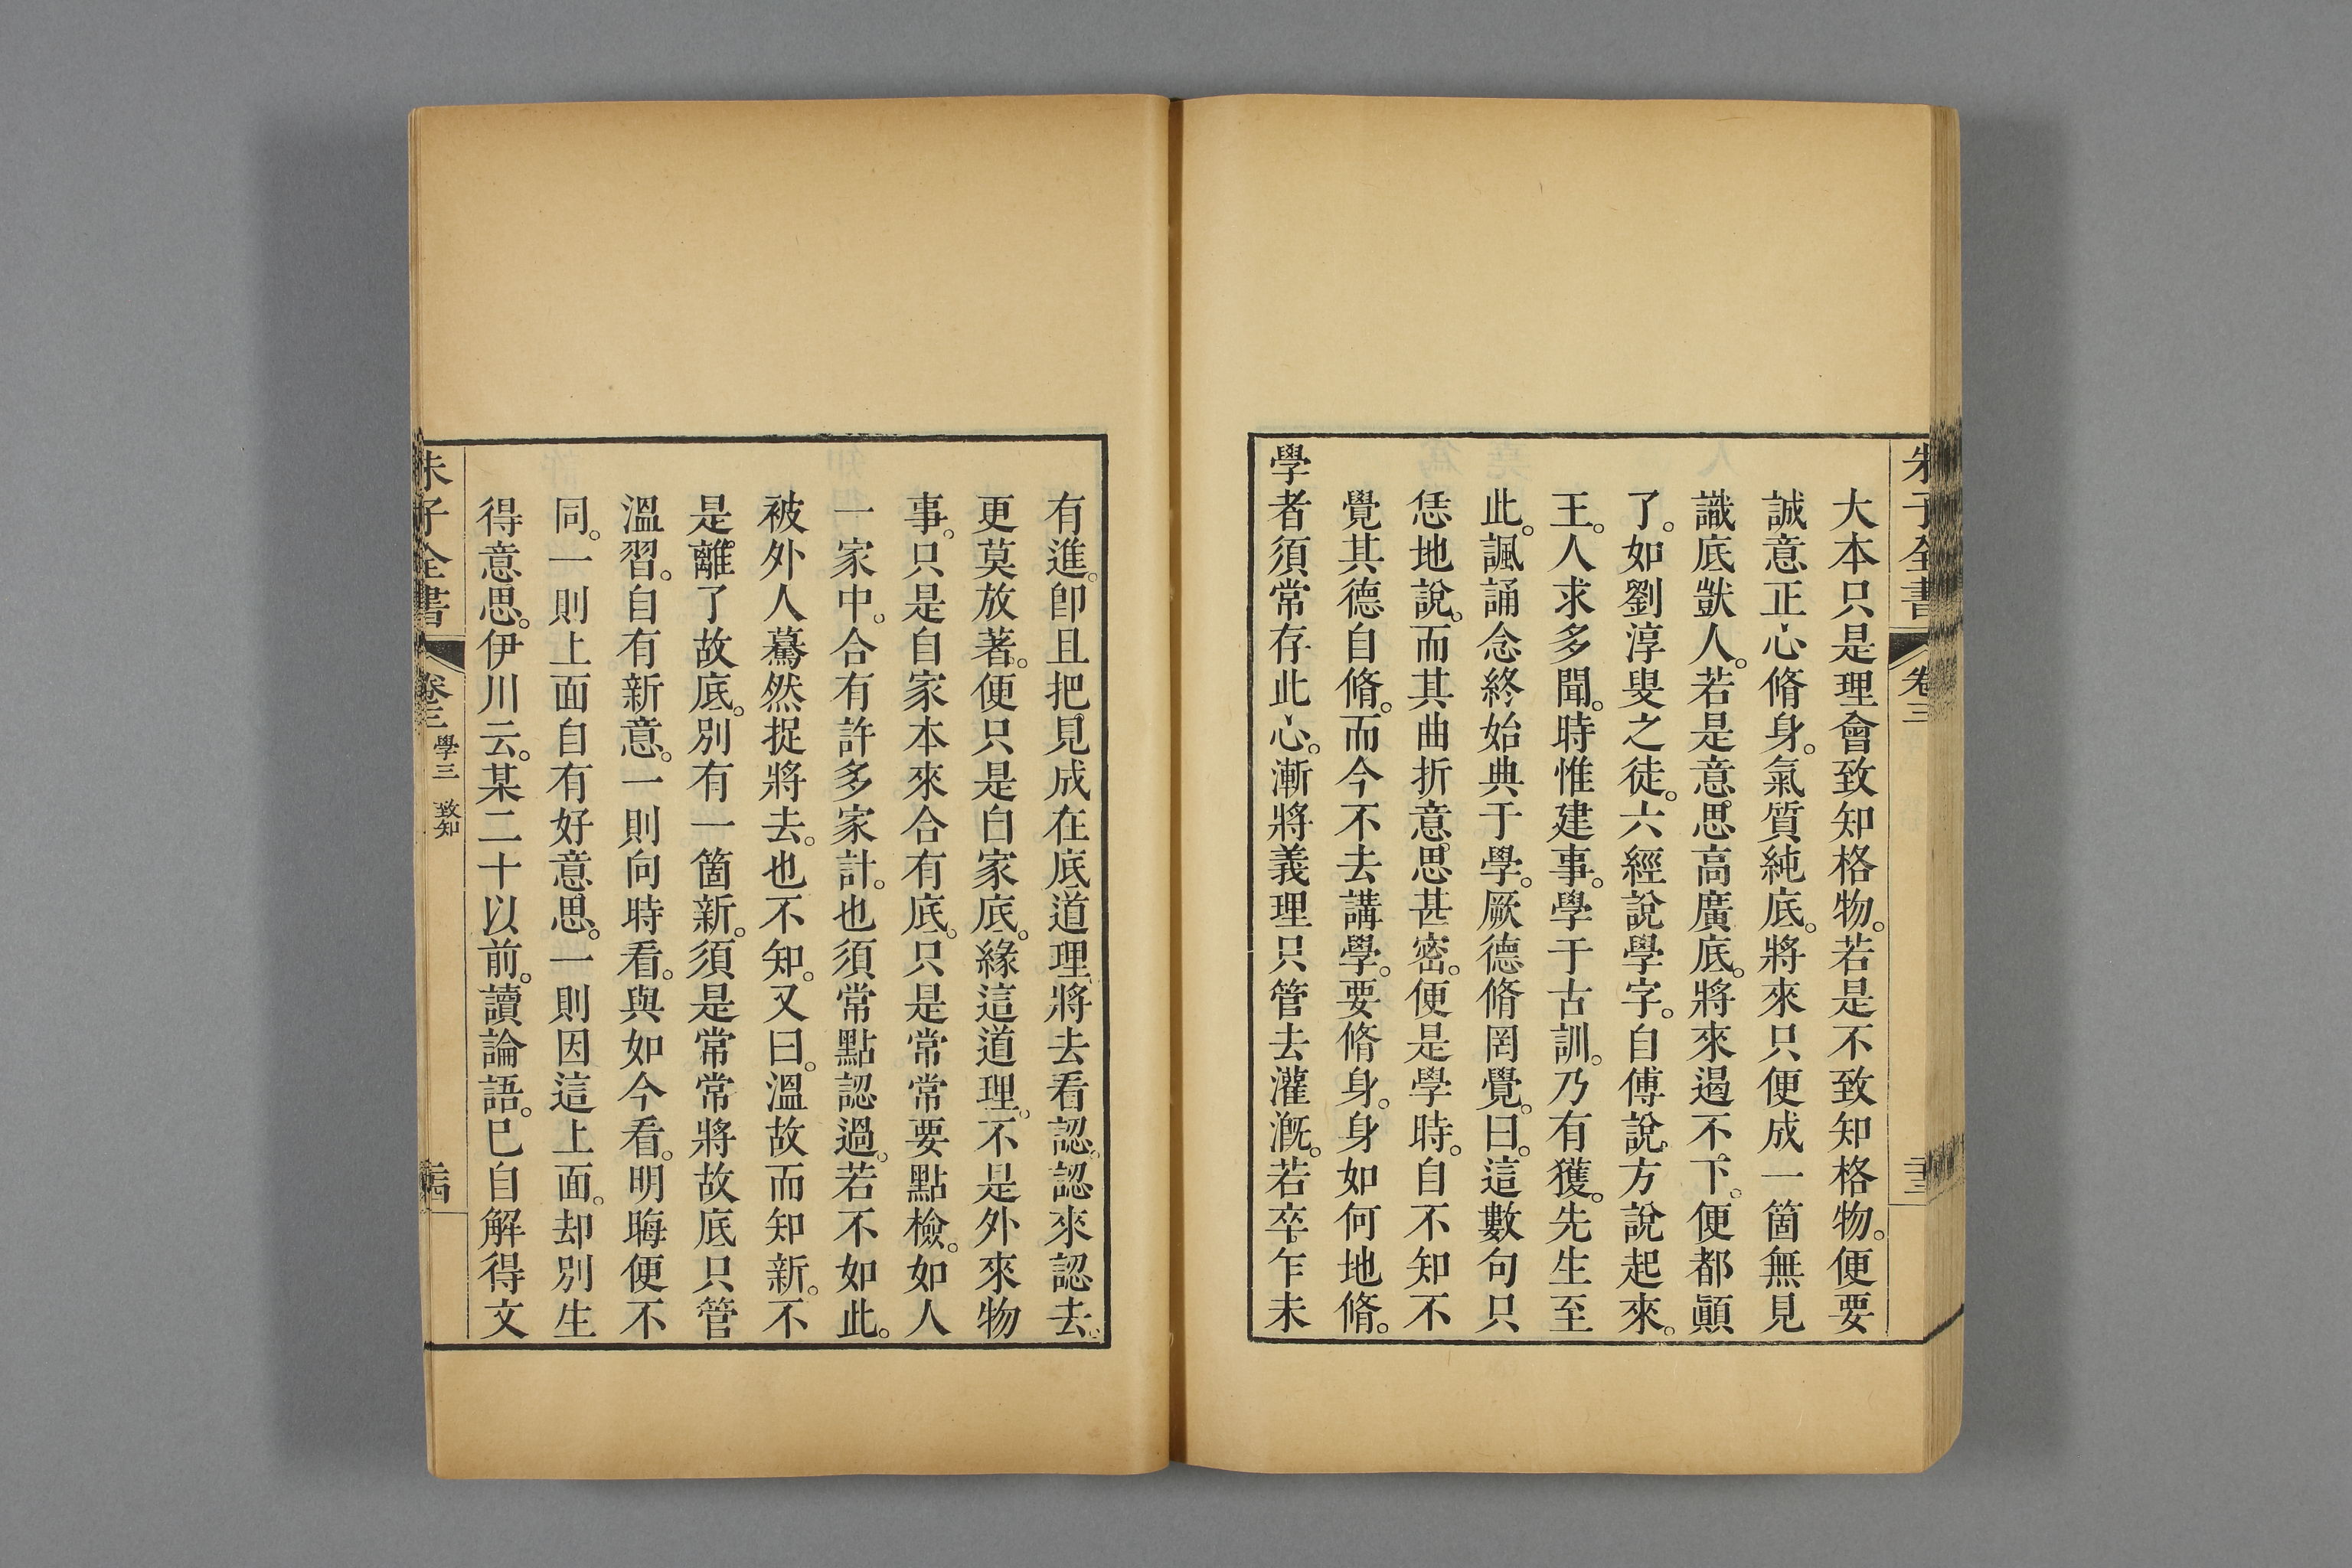 朱子全書 卷三
大本只是理會致知格物。若是不致知格物。便要
誠意正心脩身。氣質純底。將來只便成一箇無見
識底獃人。若是意思高廣底。將來遏不下。便都顚
了。如劉淳叟之徒。六經說學字。自傅說方說起來。
王。人求多聞。時惟建事。學于古訓。乃有獲。先生至
此。諷誦念終始典于學。厥德脩罔覺。曰。這數句只
恁地說。而其曲折意思甚密。便是學時。自不知不
覺其德自脩。而今不去講學。要脩身。身如何地脩。
學者須常存此心。漸將義理只管去灌漑。若卒乍未
有進。卽且把見成在底道理將去看認。認來認去。
更莫放著。便只是自家底。緣這道理。不是外來物
事。只是自家本來合有底。只是常常要點檢。如人
一家中。合有許多家計。也須常點認過。若不如此。
被外人驀然捉將去。也不知。又曰。溫故而知新。不
是離了故底。別有一箇新。須是常常將故底只管
溫習。自有新意。一則向時看。與如今看。明晦便不
同。一則上面自有好意思。一則因這上面。却別生
得意思。伊川云。某二十以前。讀論語。巳自解得文
朱子全書 卷三 學三 致知